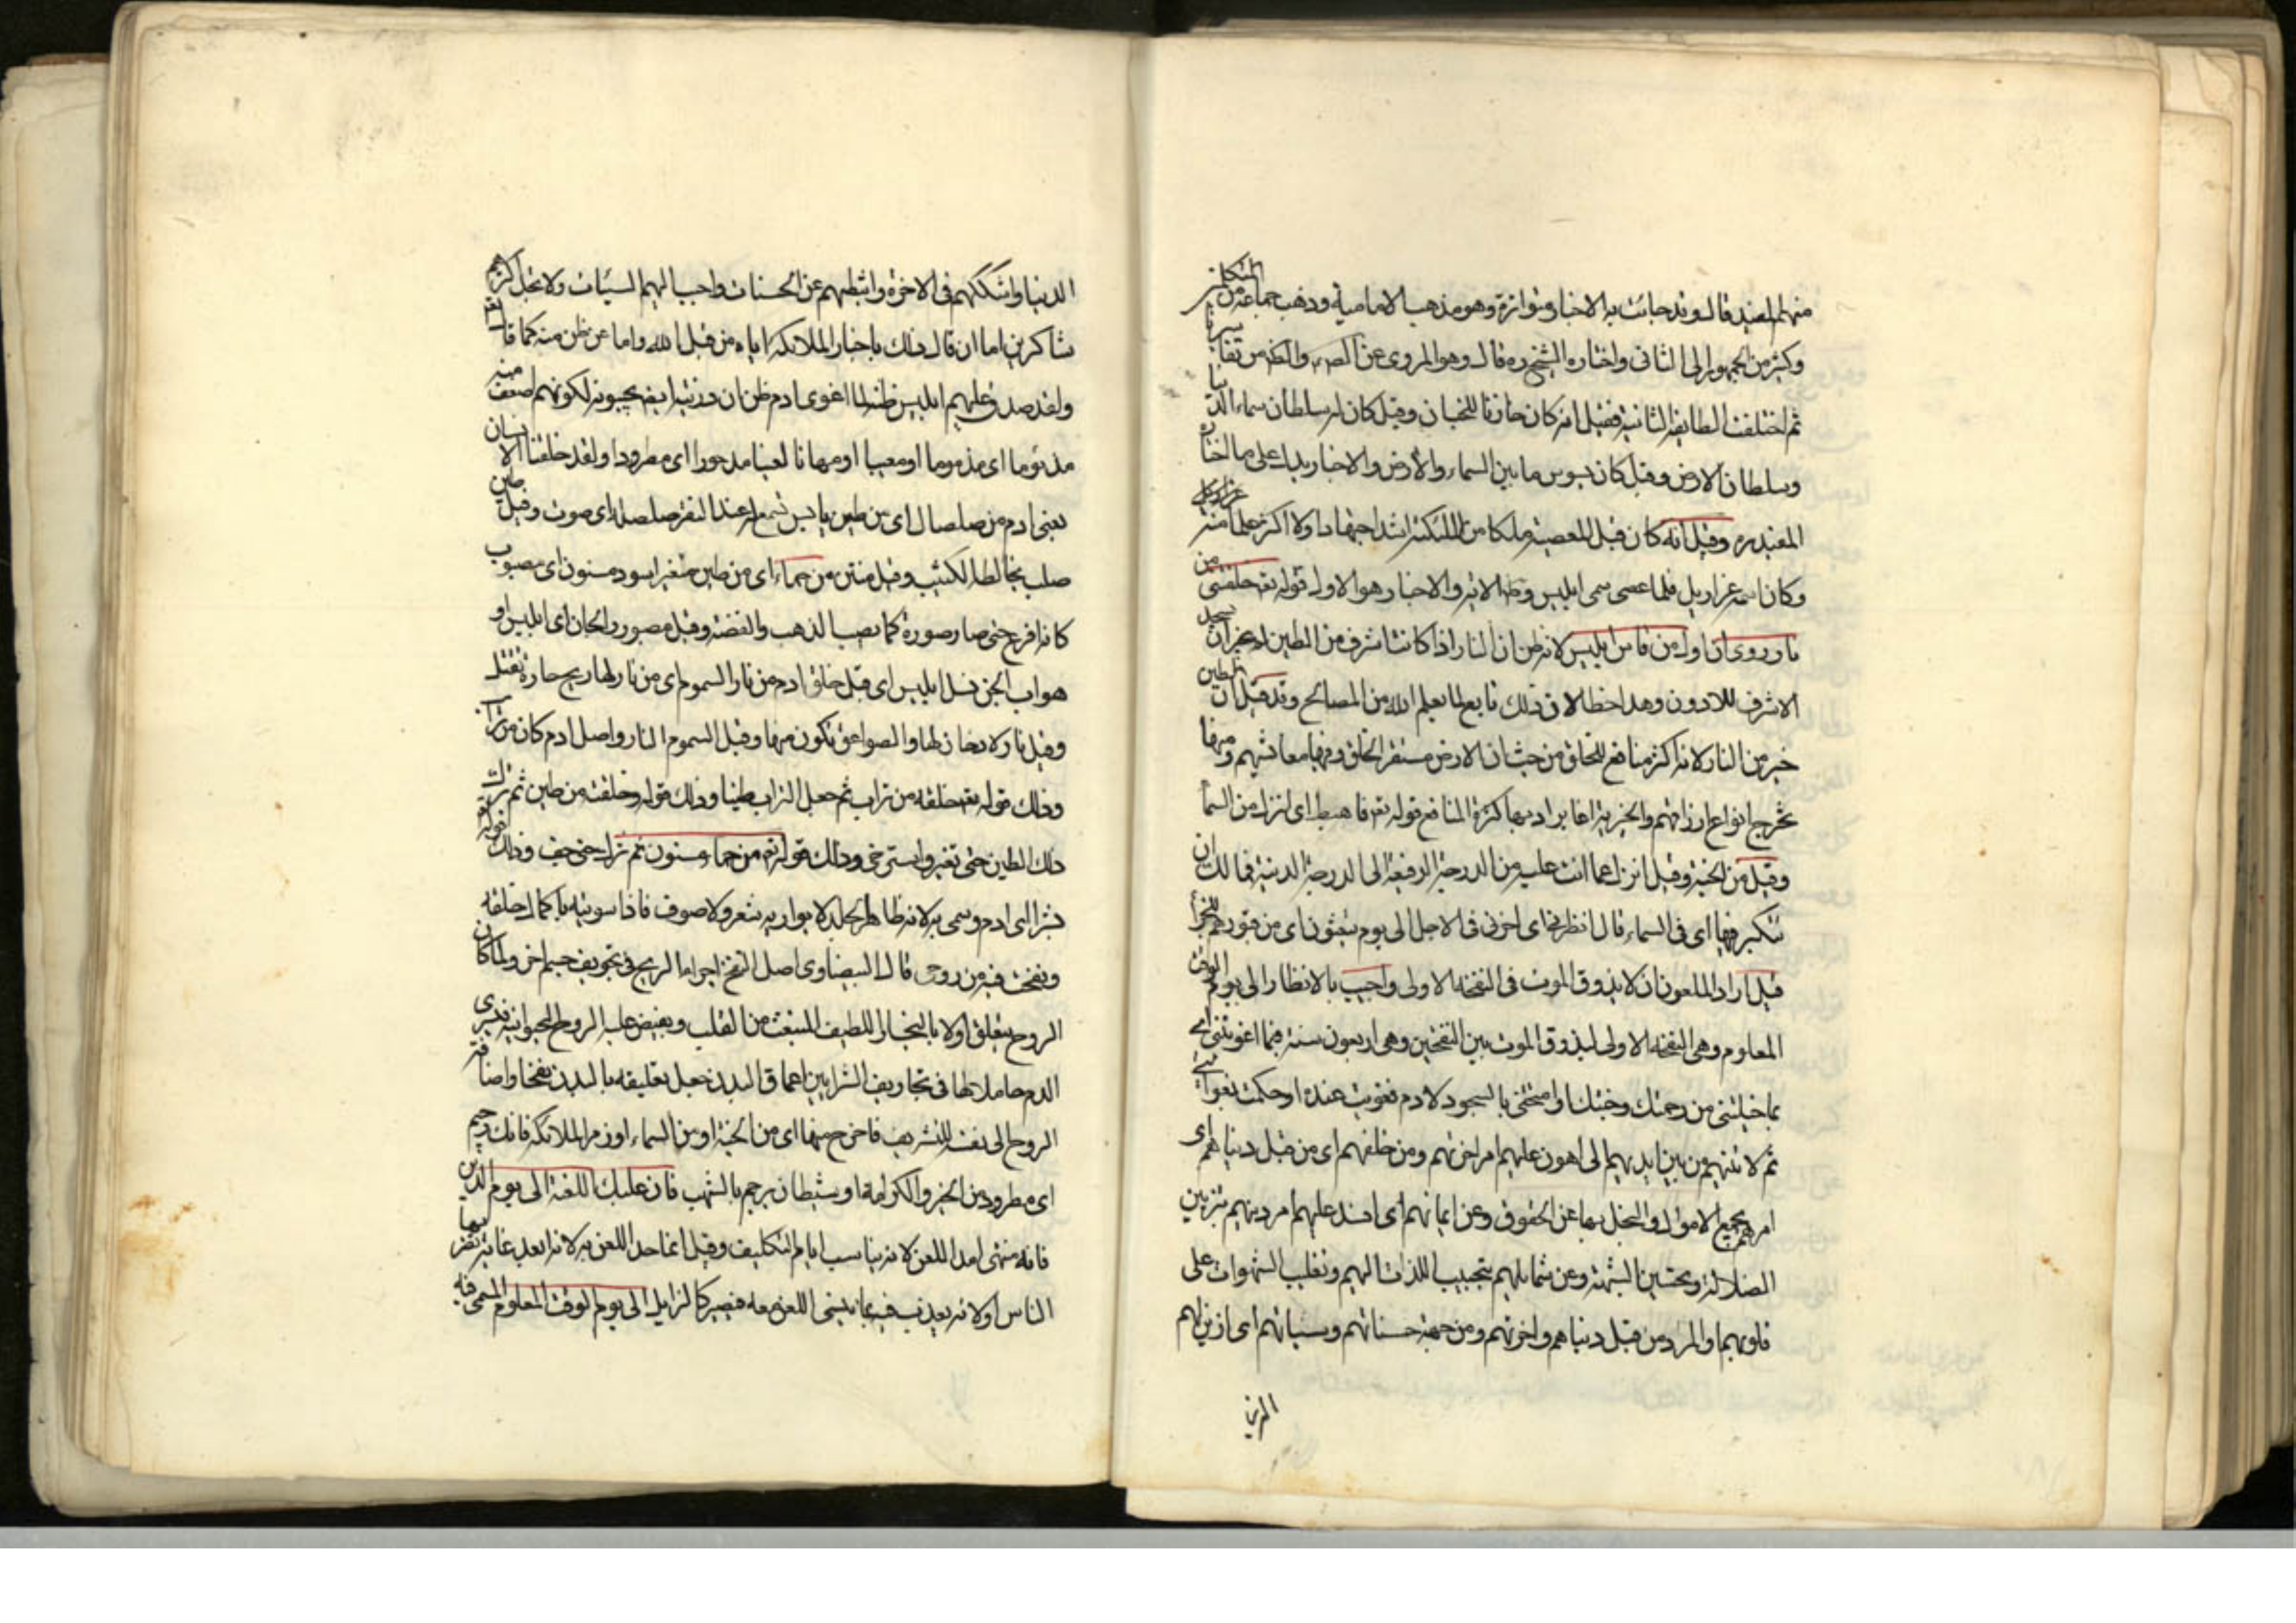 منهم المفيد قال وقد جائت به الاخبار متواترة وهو مذهب الامامية وذهب جماعة من المتكلمين
وكثير من الجمهور الى الثاني واختاره الشيخ ره قال وهو المروي عن الصم والظم من تفاسيرنا
ثم اختلفت الطايفة الثانية فقيل انه كان خازنا للجنان وقيل كان له سلطان سماء الدنيا
وسلطان الارض وقيل كان يسوس ما بين السماء والارض والاخبار يدل على ما اختاره
المفيد ره وقيل انه كان قبل المعصية ملكا من الملئكة اشد اجتهادا ولا اكثر علما منه عزازيل
وكان اسمه عزازيل فلما عصى سمى ابليس وظ الاية والاخبار هو الاول قوله تع خلقتنى من
نار روى ان اول من قاس ابليس لانه ظن ان النار اذا كانت اشرف من الطين لم يجز ان يسجد
الاشرف للادون وهذا خطا لان ذلك تابع لما يعلم الله من المصالح وقد قيل ان الطين
خير من النار لانه اكثر منافع للخلق من حيث ان الارض مستقر الخلق وفيها معائشهم ومنها
تخرج انواع ارزاقهم والخيرية انما يراد بها كثرة المنافع قوله تع فاهبط اى انزل من السما
وقيل من الجنة وقيل انزل عما انت عليه من الدرجة الرفيعة الى الدرجة الدنية فما لك ان
تتكبر فيها اى فى السماء قال انظرنى اى اخرنى فى الاجل الى يوم يبعثون اى من قبورهم للجزا
قيل اراد الملعون ان لا يذوق الموت فى النفخة الاولى واجيب بالانظار الى يوم الوقت
المعلوم وهى النفخة الاولى ليذوق الموت بين النفختين وهى اربعون سنة فبما اغويتنى اى
بما خيبتنى من رحمتك وجنتك او امتحنتنى بالسجود لادم فغويت عنده او حكمت بغوايتى
ثم لاتينهم من بين ايديهم الى اهون عليهم امر اخرتهم ومن خلفهم اى من قبل دنياهم اى
امرهم بجمع الاموال والبخل بها عن الحقوق وعن ايمانهم اى افسد عليهم امر دينهم بتزيين
الضلالة وتحسين الشبهة وعن شمايلهم بتحبيب اللذات اليهم وتغليب الشهوات على
قلوبهم او المراد من قبل دنياهم واخرتهم ومن جهة حسناتهم وسيئاتهم اى ازين لهم
الدنيا
الدنيا واشككهم فى الاخرة واثبطهم عن الحسنات واحبب اليهم السيئات ولا تجد اكثرهم
شاكرين اما ان قال ذلك باخبار الملائكه اياه من قبل الله واما عن ظن منه كما قال تع
ولقد صدق عليهم ابليس ظنه لما اغوى ادم ظن ان ذريته ايضا يجيبونه لكونهم اضعف منه
مذئوما اى مذموما او معيبا او مهانا لعينا مدحورا اى مطرودا ولقد خلقنا الانسان
يعنى ادم من صلصال اى من طين يابس تسمع له عند النقر صلصلة اى صوت وقيل طين
صلب يخالطه الكثيب وقيل منتن من حماء اى من طين متغير اسود مسنون اى مصبوب
كانه افرغ حتى صار صورة كما يصب الذهب والفضة وقيل مصور والجان اى ابليس او
هو اب الجن نسل ابليس اى قبل خلق ادم من نار السموم اى من نار لها ريح حارة تقتل
وقيل نار لا دخان لها والصواعق تكون منها وقيل السموم النار واصل ادم كان من تراب
وذلك قوله تع خلقه من تراب ثم جعل التراب طينا وذلك قوله خلقته من طين ثم ترك
ذلك الطين حتى تغير واسترخى وذلك قوله تع من حماء مسنون ثم ترك حتى جف وذلك قوله
بشرا اى ادم وسمى به لانه ظاهر الجلد لا يواريه شعر ولا صوف فاذا سويته باكمال خلقه
ونفخت فيه من روحى قال البيضاوى اصل النفخ اجراء الريح فى تجويف جسم اخر ولما كان
الروح يتعلق اولا بالبخار اللطيف المنبعث من القلب ويفيض عليه الروح الحيوانية فيسرى
الدم حاملا لها فى تجاويف الشرايين اعماق البدن جعل تعليقه بالبدن نفخا واضافة
الروح الى نفسه للتشريف فاخرج منها اى من الجنة او من السماء او زمرة الملائكه فانك رجيم
اى مطرود من الخير والكرامة او شيطان يرجم بالشهب فان عليك اللعنة الى يوم الدين
فانه منتهى امد اللعن لانه يناسب ايام التكليف وقيل انما حد اللعن به لانه ابعد غاية يضربها
الناس او لانه يعذب فيه بما ينسى اللعن معه فيصير كالزايل الى يوم الوقت المعلوم المسمى فيه